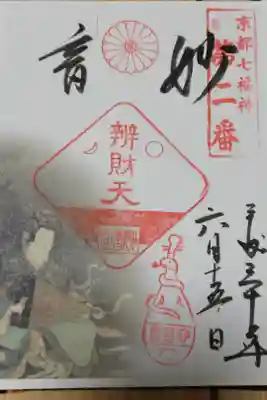 京都七福神
第二番
妙音
辨財天
平成三十年
六月十五日